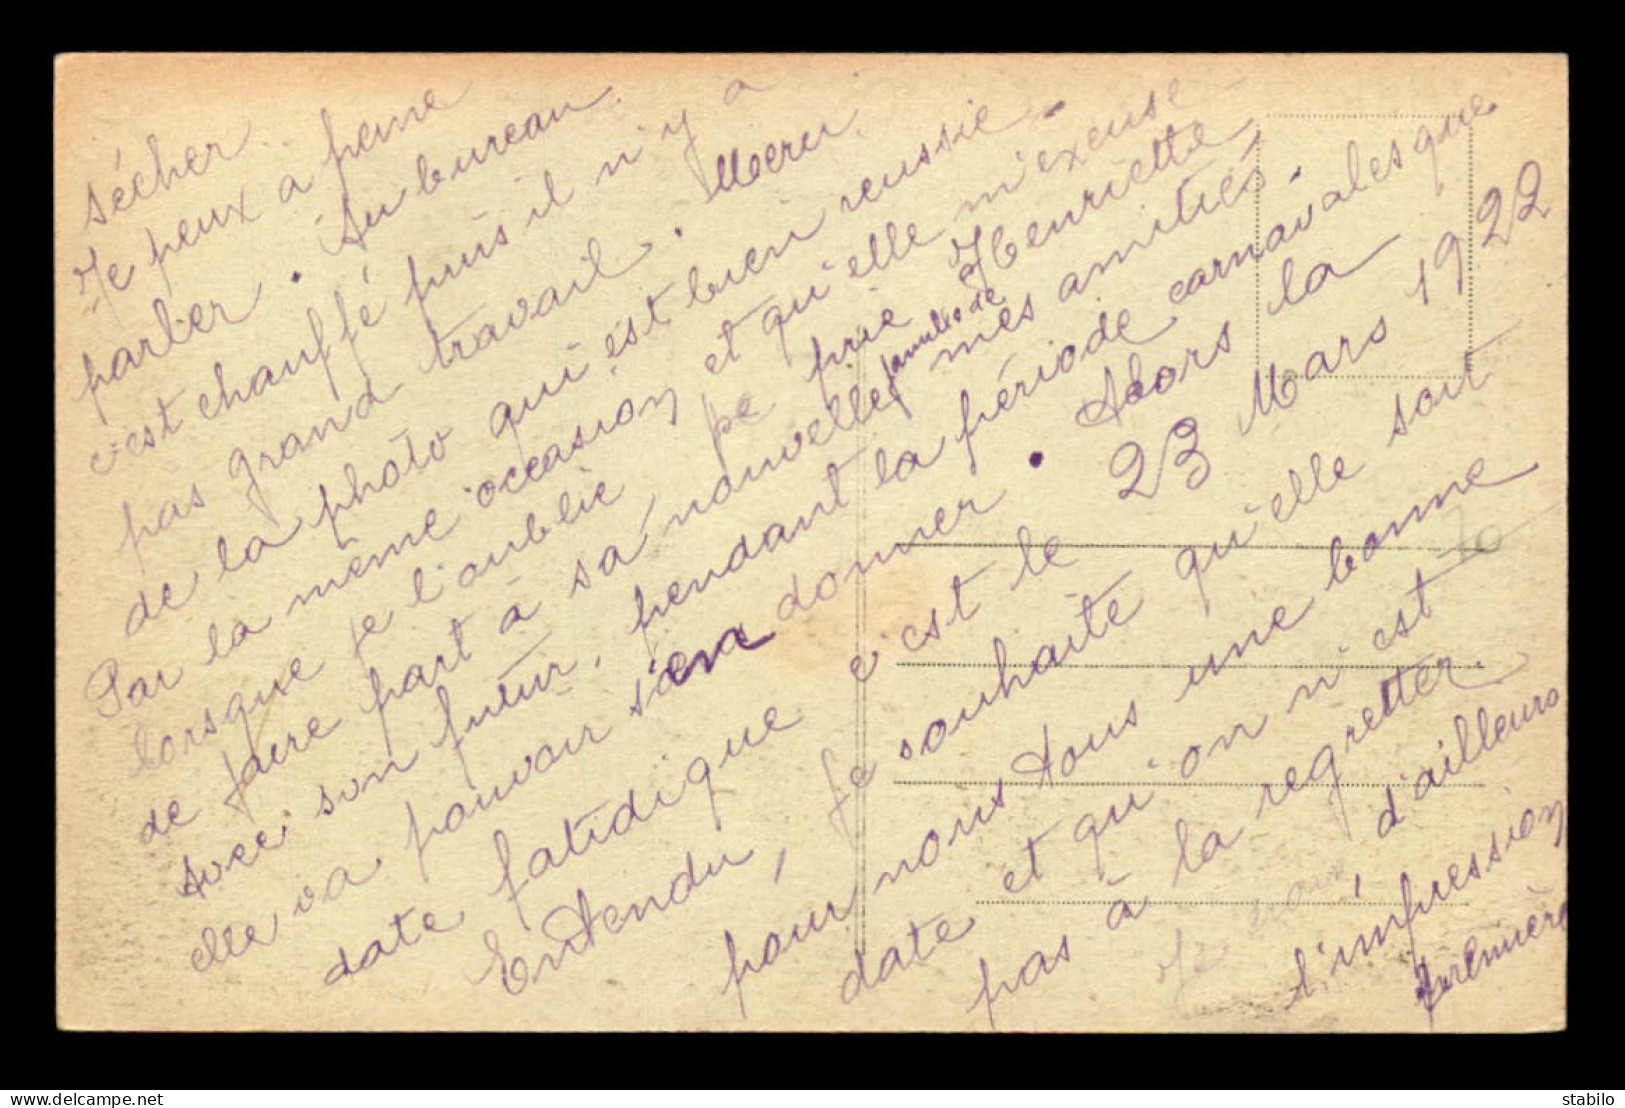 sécher.
Je peux a peine
parler. Au bureau
c'est chauffé puis il n'y a
pas grand travail. Merci
de la photo qui est bien reussie.
Par la même occasion et qu'elle m'excuse
lorsque je l'oublie je prie Henriette
de faire part à sa nouvelle famille de mes amitiés.
Avec son futur, pendant la période carnavalesque
elle va pouvoir s'en donner. Alors la
date fatidique c'est le 23 Mars 1922
Entendu, je souhaite qu'elle soit
pour nous tous une bonne
date et qu'on n'est
pas à la regretter.
Je d'ailleurs
l'impression
première
70
delcampe.net
stabilo